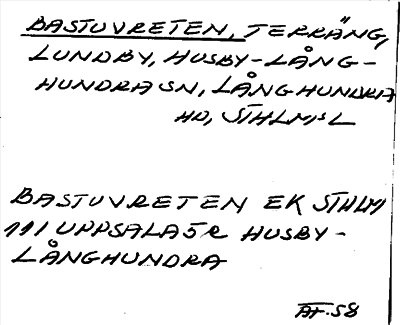 BASTUVRETEN, TERRÄNG,
LUNDBY, HUSBY-LÅNG-
HUNDRA SN, LÅNGHUNDRA
HD, STHLMS L
BASTUVRETEN EK STHLM
111 UPPSALA 5 R HUSBY-
LÅNGHUNDRA
AF. 58